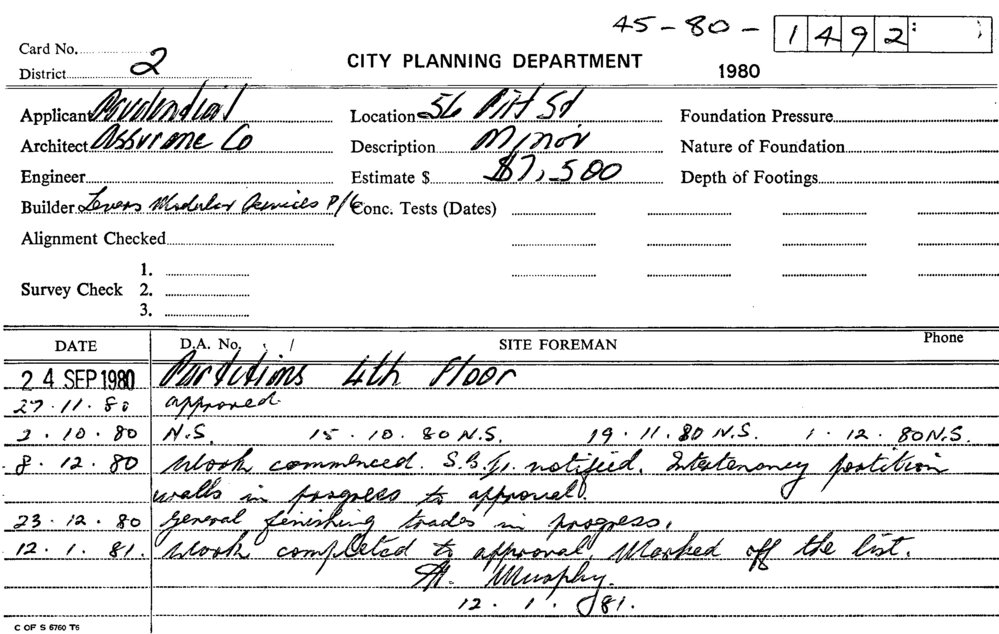 45-80- 1492
Card No.
District 2
CITY PLANNING DEPARTMENT
1980
Applicant Prudential Location 56 Pitt St Foundation Pressure
Architect Assurance Co Description Minor Nature of Foundation
Engineer Estimate $ $7,500 Depth of Footings
Builder Levers Modular Services P/L Conc. Tests (Dates)
Alignment Checked
1.
Survey Check 2.
3.
DATE D.A. No. SITE FOREMAN Phone
24 SEP 1980 Partitions 4th Floor
27.11.80 approved.
2.10.80 N.S. 15.10.80 N.S. 19.11.80 N.S. 1.12.80 N.S.
8.12.80 Work commenced. notified. Intertenancy partition
walls in progress to approval.
23.12.80 General finishing trades in progress.
12.1.81. Work completed to approval. Marked off the list.
Murphy.
12.1.81.
C OF S 6760 T6